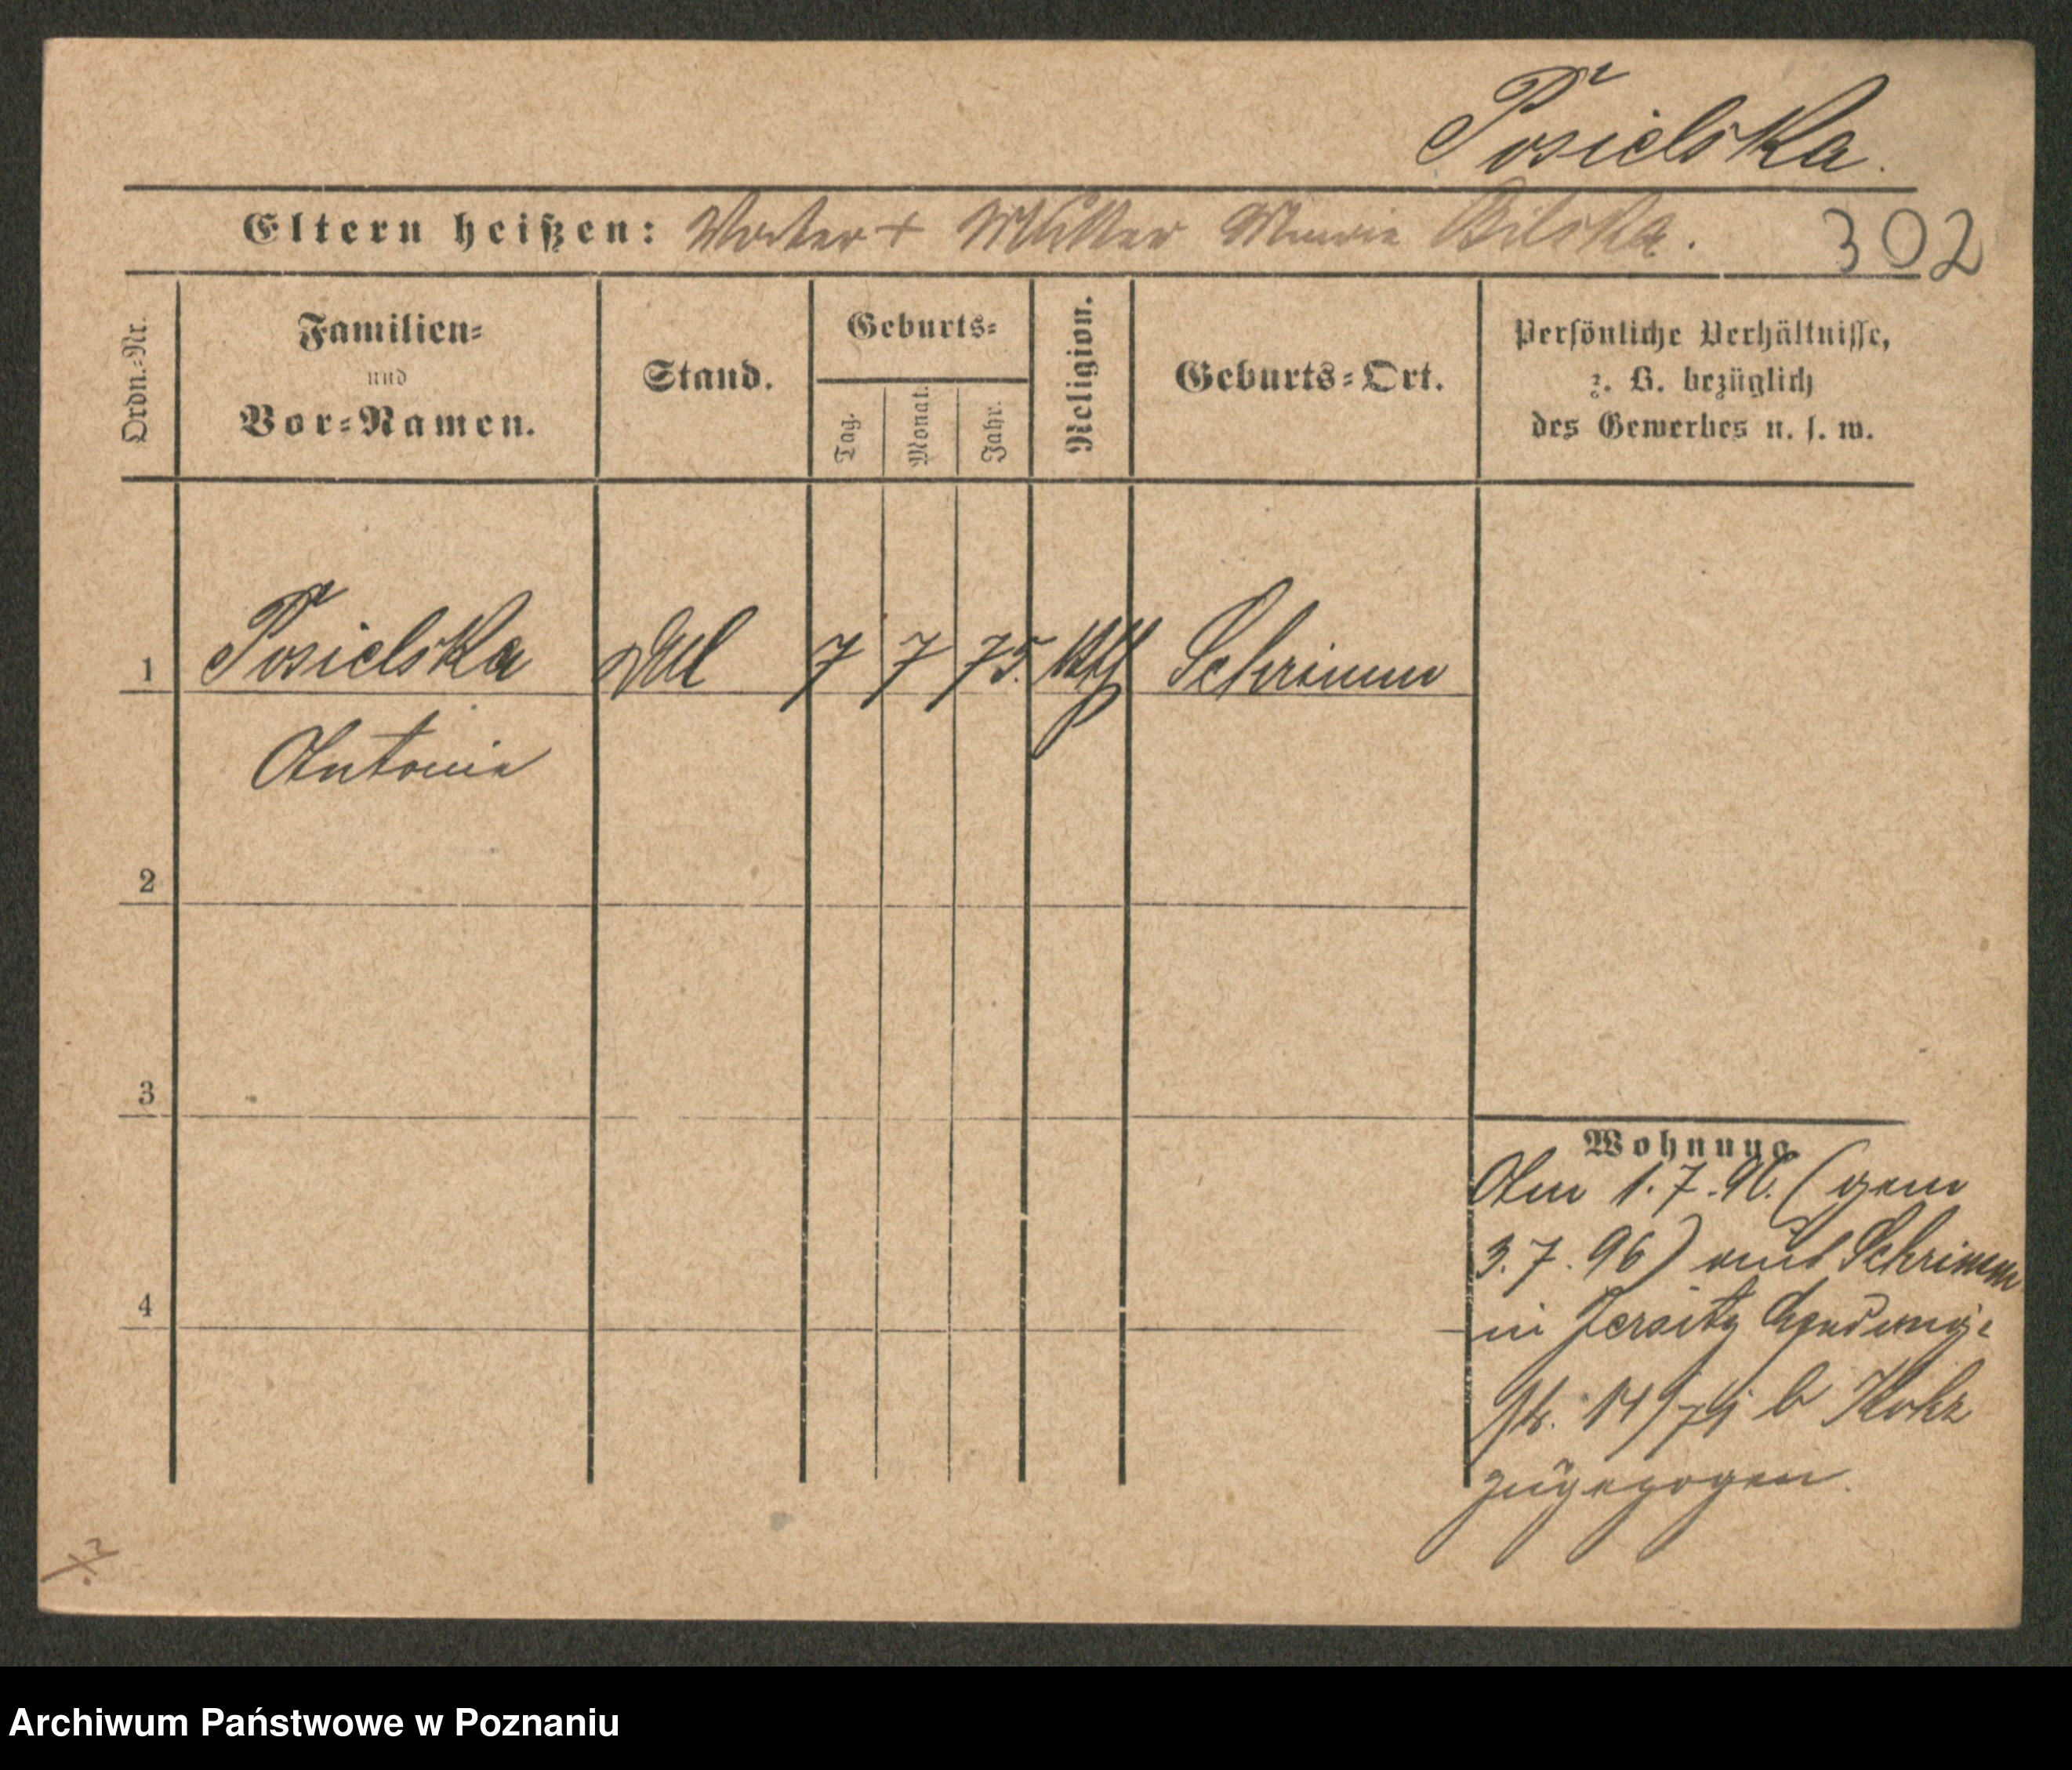 Posielska.
Eltern heißen: Vater + Mutter Marie Bilska.
302
Ordn.=Nr.
Familien=
und
Vor=Namen.
Stand.
Geburts=
Tag.
Monat.
Jahr.
Religion.
Geburts=Ort.
Persönliche Verhältnisse,
z. B. bezüglich
des Gewerbes u. s. w.
1 Posielska 7 7 75. kth Schrimm
Antonie
2
3
4
Wohnung
Am 1.7.96. (gem
3.7.96) aus Schrimm
in Jersitz
Str. 14 b
zugezogen.
Archiwum Państwowe w Poznaniu